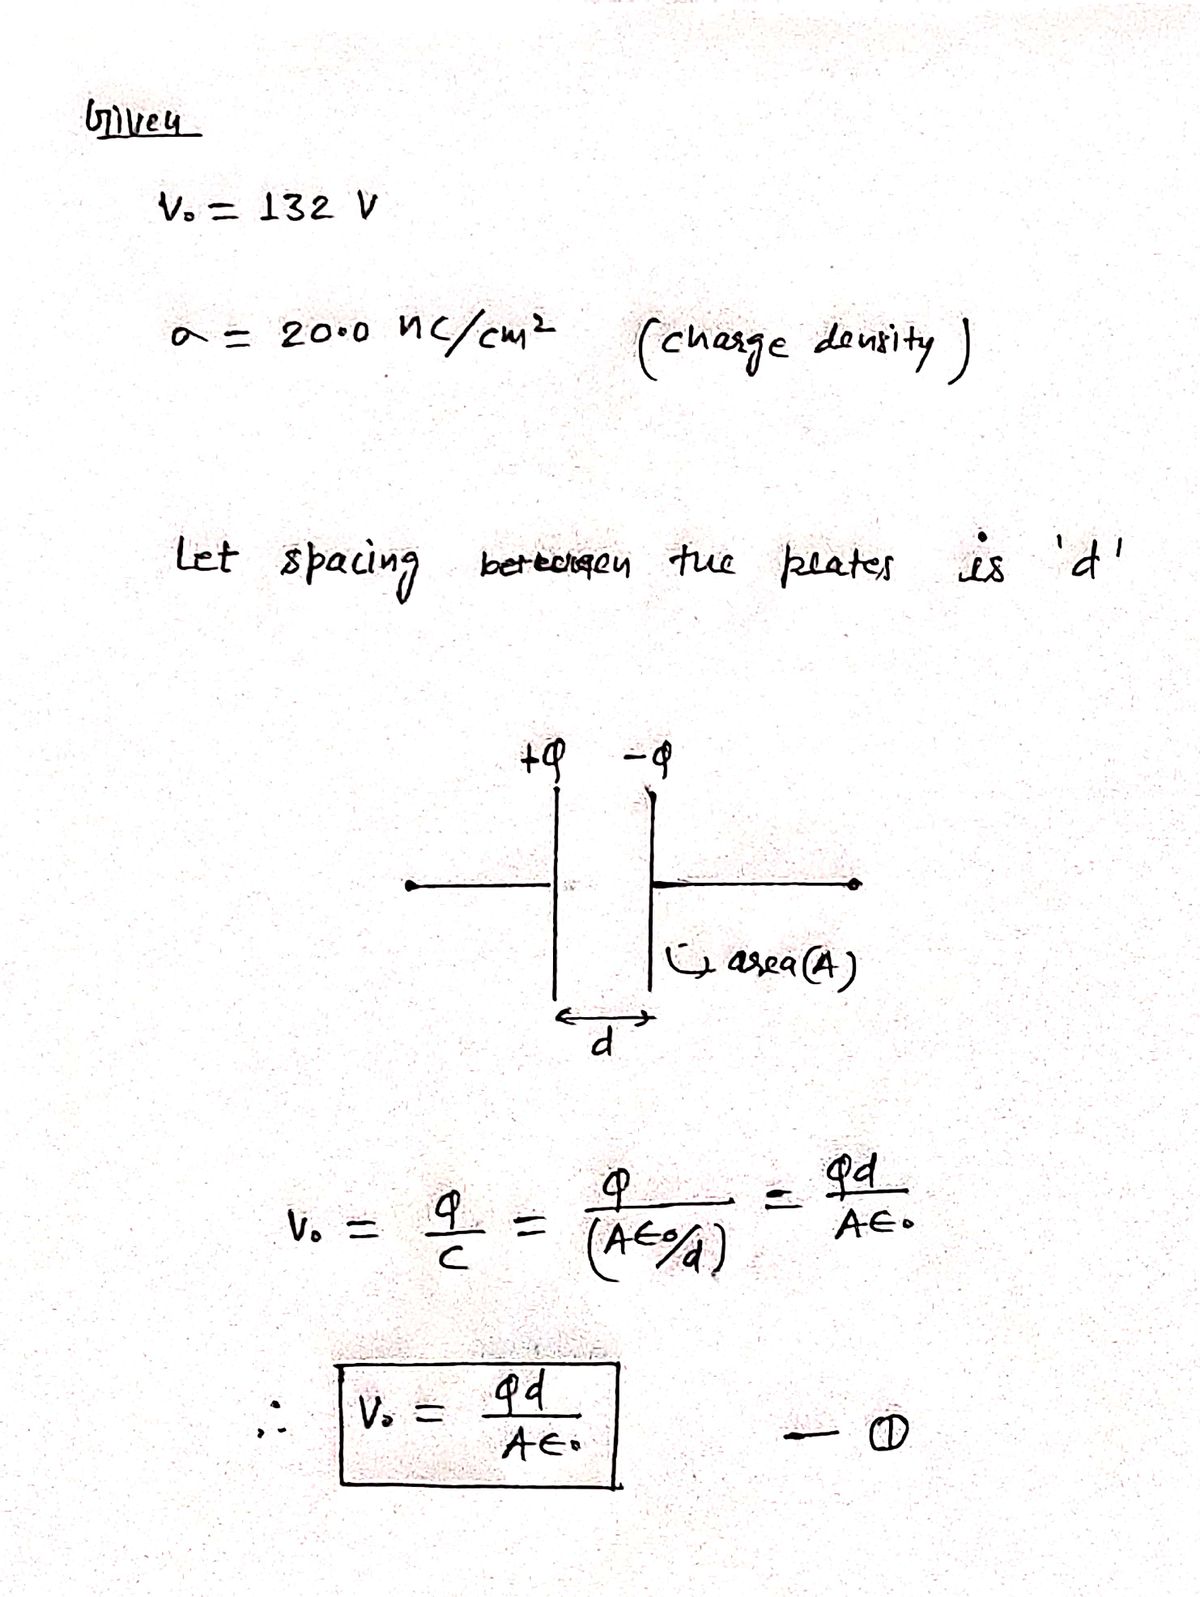 Given
V₀ = 132 V
σ = 20.0 nC/cm² (charge density)
Let spacing between the plates is 'd'
+Q -Q
area(A)
d
V₀ = Q/C = Q/(A∈₀/d) = Qd/A∈₀
∴ V₀ = Qd/A∈₀ — ①